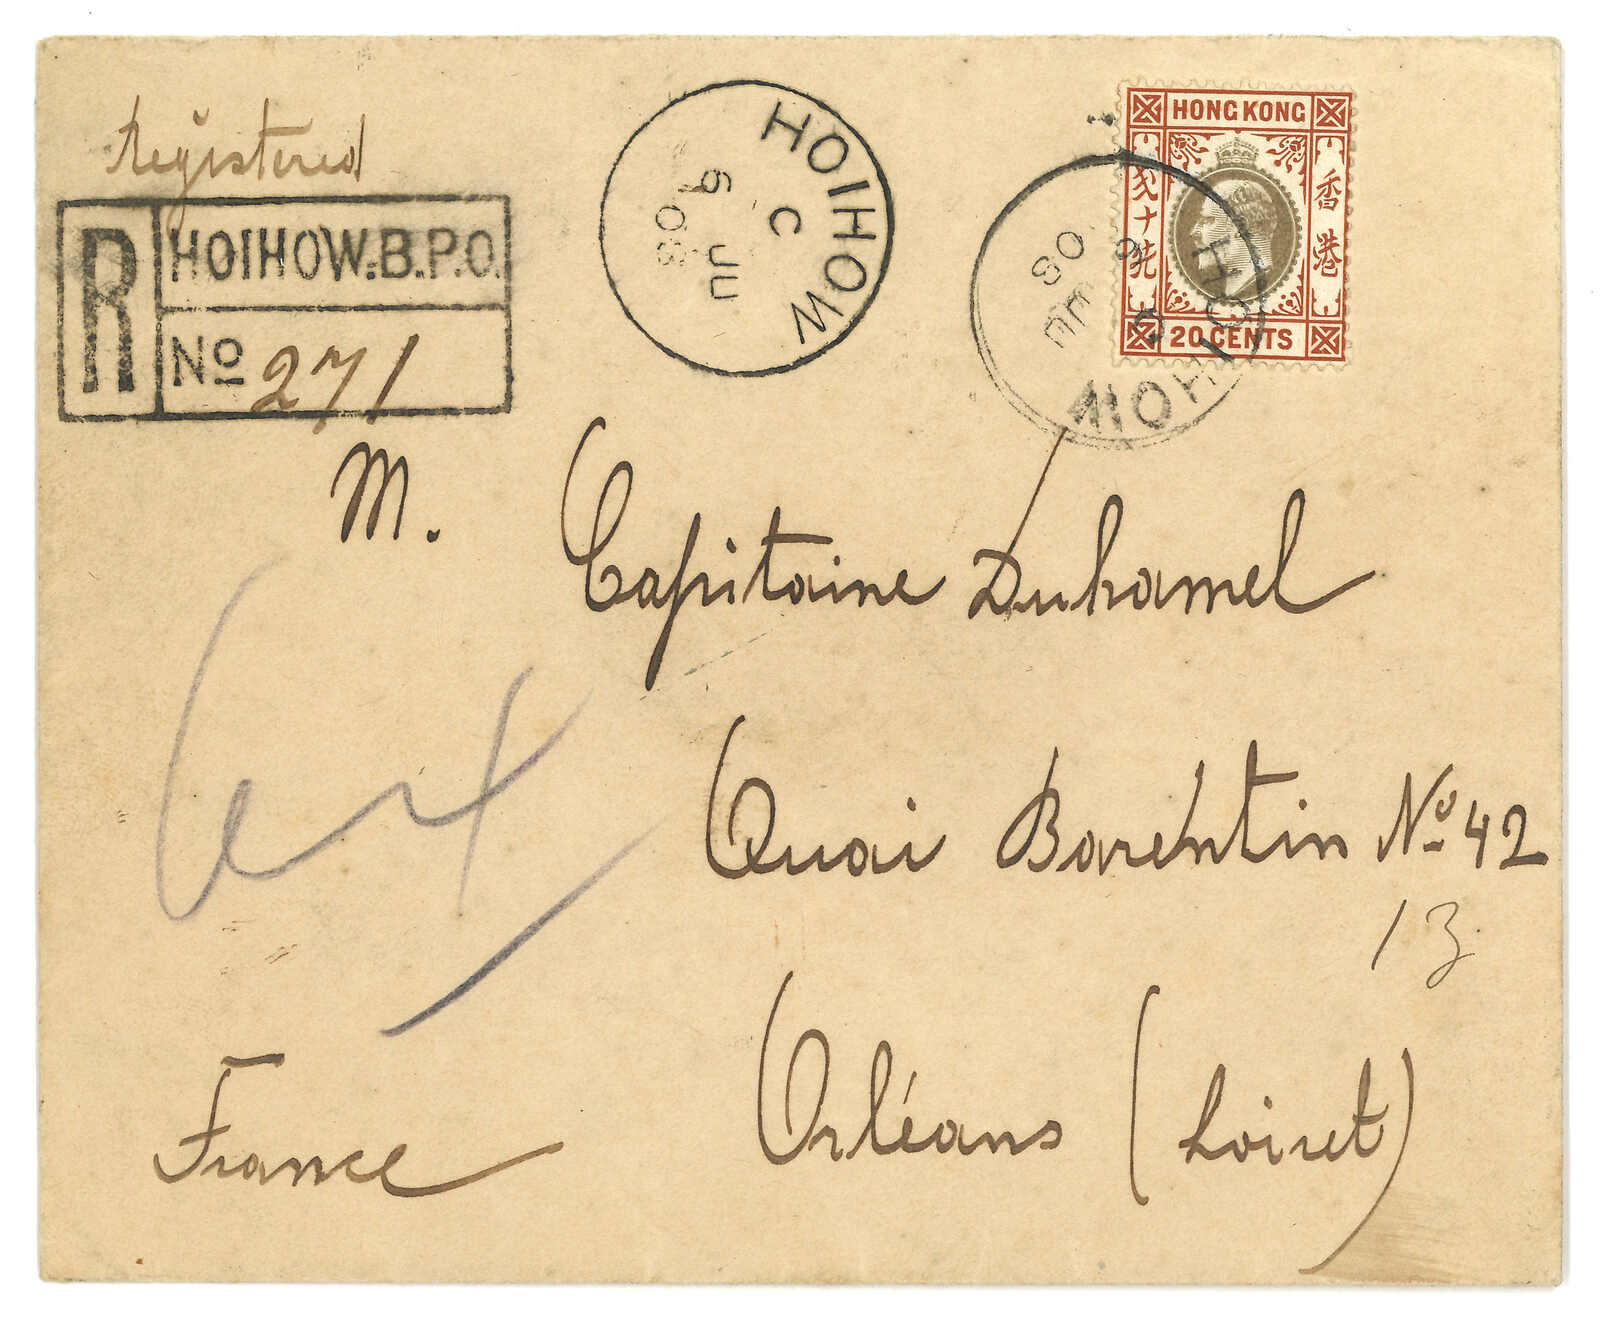 Registered
R
HOIHOW.B.P.O.
No 271
HOIHOW
C
9 JU
08
HONG KONG
香港
20 CENTS
HOIHOW
C
9 JU
08
M. Capitaine Duhamel
Quai Barentin No. 42
13
Orléans (Loiret)
France